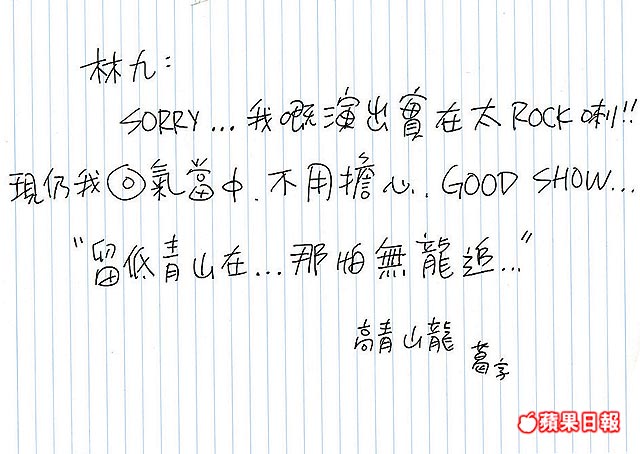 林九:
SORRY... 我嘅演出實在太ROCK喇!!
現仍我◎氣當中. 不用擔心.. GOOD SHOW...
"留低青山在... 那怕無龍追..."
高青山龍 葛字
蘋果日報